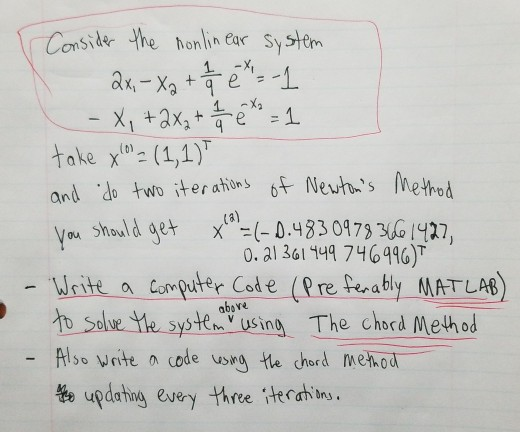 Consider the nonlinear system
2x₁ - x₂ + 1/9 e^-x₁ = -1
- x₁ + 2x₂ + 1/9 e^-x₂ = 1
take x⁽⁰⁾ = (1,1)ᵀ
and do two iterations of Newton's Method
you should get x⁽²⁾ = (-0.48309783661427,
0.21361449746996)ᵀ
- Write a computer code (Preferably MATLAB)
to solve the system above using The chord Method
- Also write a code using the chord method
updating every three iterations.